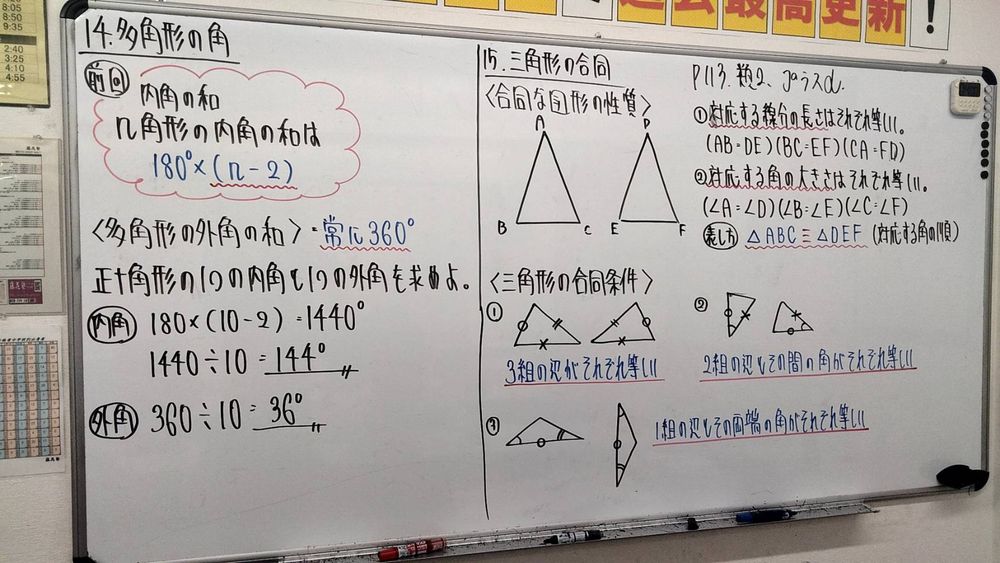 過去最高更新!
8:05
8:50
9:35
2:40
3:25
4:10
4:55
14.多角形の角
前回
内角の和
n角形の内角の和は
180°×(n-2)
〈多角形の外角の和〉=常に360°
正十角形の1つの内角と1つの外角を求めよ。
内角 180×(10-2)=1440°
1440÷10=144°
外角 360÷10=36°
15.三角形の合同
P113.題2.プラスd.
〈合同な図形の性質〉
A
B
C
D
E
F
①対応する線分の長さはそれぞれ等しい。
(AB=DE)(BC=EF)(CA=FD)
②対応する角の大きさはそれぞれ等しい。
(∠A=∠D)(∠B=∠E)(∠C=∠F)
表し方 △ABC≡△DEF (対応する角の順)
〈三角形の合同条件〉
①
3組の辺がそれぞれ等しい
②
2組の辺とその間の角がそれぞれ等しい
③
1組の辺とその両端の角がそれぞれ等しい